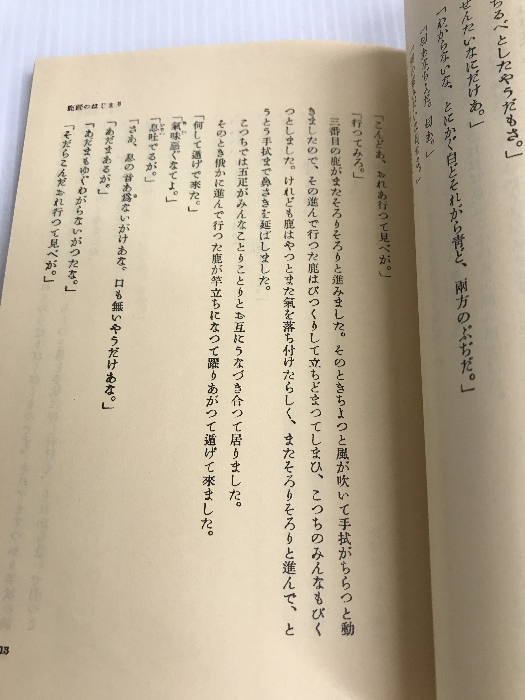 ちるべとしたやうだもさ。」
せんたいなにだけあ。」
「わからないな。とにかく白とそれから青と、両方のぶちだ。」
鹿踊のはじまり
「こんどあ、おれあ行つて見べが。」
「行つてみろ。」
三番目の鹿がまたそろりそろりと進みました。そのときちよつと風が吹いて手拭がちらつと動
きましたので、その進んで行つた鹿はびつくりして立ちどまつてしまひ、こつちのみんなもびく
つとしました。けれども鹿はやつとまた氣を落ち付けたらしく、またそろりそろりと進んで、と
うとう手拭まで鼻さきを延ばしました。
こつちでは五疋がみんなことりことりとお互にうなづき合つて居りました。
そのとき俄かに進んで行つた鹿が竿立ちになつて躍りあがつて遁げて來ました。
「何して遁げで來た。」
「氣味惡ぐなてよ。」
「息吐でるが。」
「さあ、息の音あ爲ないがけあな。口も無いやうだけあな。」
「あだまあるが。」
「あだまもゆぐわがらないがつたな。」
「そだらこんだおれ行つて見べが。」
13